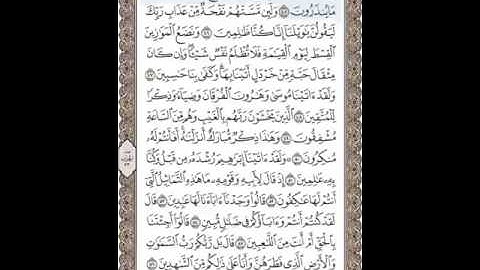 مَا يُنذَرُونَ ٤٥ وَلَئِن مَّسَّتْهُمْ نَفْحَةٌ مِّنْ عَذَابِ رَبِّكَ
لَيَقُولُنَّ يَٰوَيْلَنَآ إِنَّا كُنَّا ظَٰلِمِينَ ٤٦ وَنَضَعُ ٱلْمَوَٰزِينَ
ٱلْقِسْطَ لِيَوْمِ ٱلْقِيَٰمَةِ فَلَا تُظْلَمُ نَفْسٌ شَيْـًٔا وَإِن كَانَ
مِثْقَالَ حَبَّةٍ مِّنْ خَرْدَلٍ أَتَيْنَا بِهَا وَكَفَىٰ بِنَا حَٰسِبِينَ ٤٧
وَلَقَدْ ءَاتَيْنَا مُوسَىٰ وَهَٰرُونَ ٱلْفُرْقَانَ وَضِيَآءً وَذِكْرًا
لِّلْمُتَّقِينَ ٤٨ ٱلَّذِينَ يَخْشَوْنَ رَبَّهُم بِٱلْغَيْبِ وَهُم مِّنَ ٱلسَّاعَةِ
مُشْفِقُونَ ٤٩ وَهَٰذَا ذِكْرٌ مُّبَارَكٌ أَنزَلْنَٰهُ أَفَأَنتُمْ لَهُۥ
مُنكِرُونَ ٥٠ وَلَقَدْ ءَاتَيْنَآ إِبْرَٰهِيمَ رُشْدَهُۥ مِن قَبْلُ وَكُنَّا
بِهِۦ عَٰلِمِينَ ٥١ إِذْ قَالَ لِأَبِيهِ وَقَوْمِهِۦ مَا هَٰذِهِ ٱلتَّمَاثِيلُ ٱلَّتِىٓ
أَنتُمْ لَهَا عَٰكِفُونَ ٥٢ قَالُوا۟ وَجَدْنَآ ءَابَآءَنَا لَهَا عَٰبِدِينَ ٥٣ قَالَ
لَقَدْ كُنتُمْ أَنتُمْ وَءَابَآؤُكُمْ فِى ضَلَٰلٍ مُّبِينٍ ٥٤ قَالُوٓا۟ أَجِئْتَنَا
بِٱلْحَقِّ أَمْ أَنتَ مِنَ ٱللَّٰعِبِينَ ٥٥ قَالَ بَل رَّبُّكُمْ رَبُّ ٱلسَّمَٰوَٰتِ
وَٱلْأَرْضِ ٱلَّذِى فَطَرَهُنَّ وَأَنَا۠ عَلَىٰ ذَٰلِكُم مِّنَ ٱلشَّٰهِدِينَ ٥٦